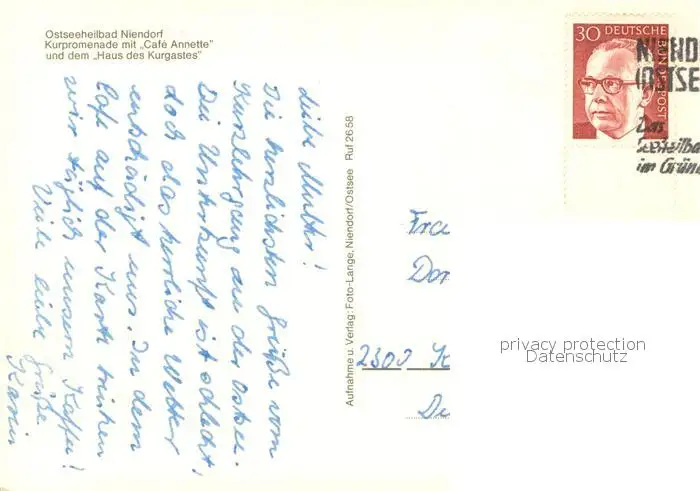 Ostseeheilbad Niendorf
Kurpromenade mit „Café Annette"
und dem „Haus des Kurgastes"
30 DEUTSCHE
BUNDESPOST
NIEND
(OSTSE
Das
Seeheilba
im Grüne
Liebe Mutter!
Die herzlichsten Grüße vom
Kurzlehrgang an der Ostsee.
Die Unterkunft ist schlecht,
doch das herrliche Wetter
entschädigt uns. In dem
Cafe auf der Karte trinken
wir täglich unsern Kaffee!
Viele liebe Grüße
Karin
Aufnahme u. Verlag: Foto-Lange, Niendorf/Ostsee Ruf 26 58
Fra
Dor
2300 K
De
privacy protection
Datenschutz